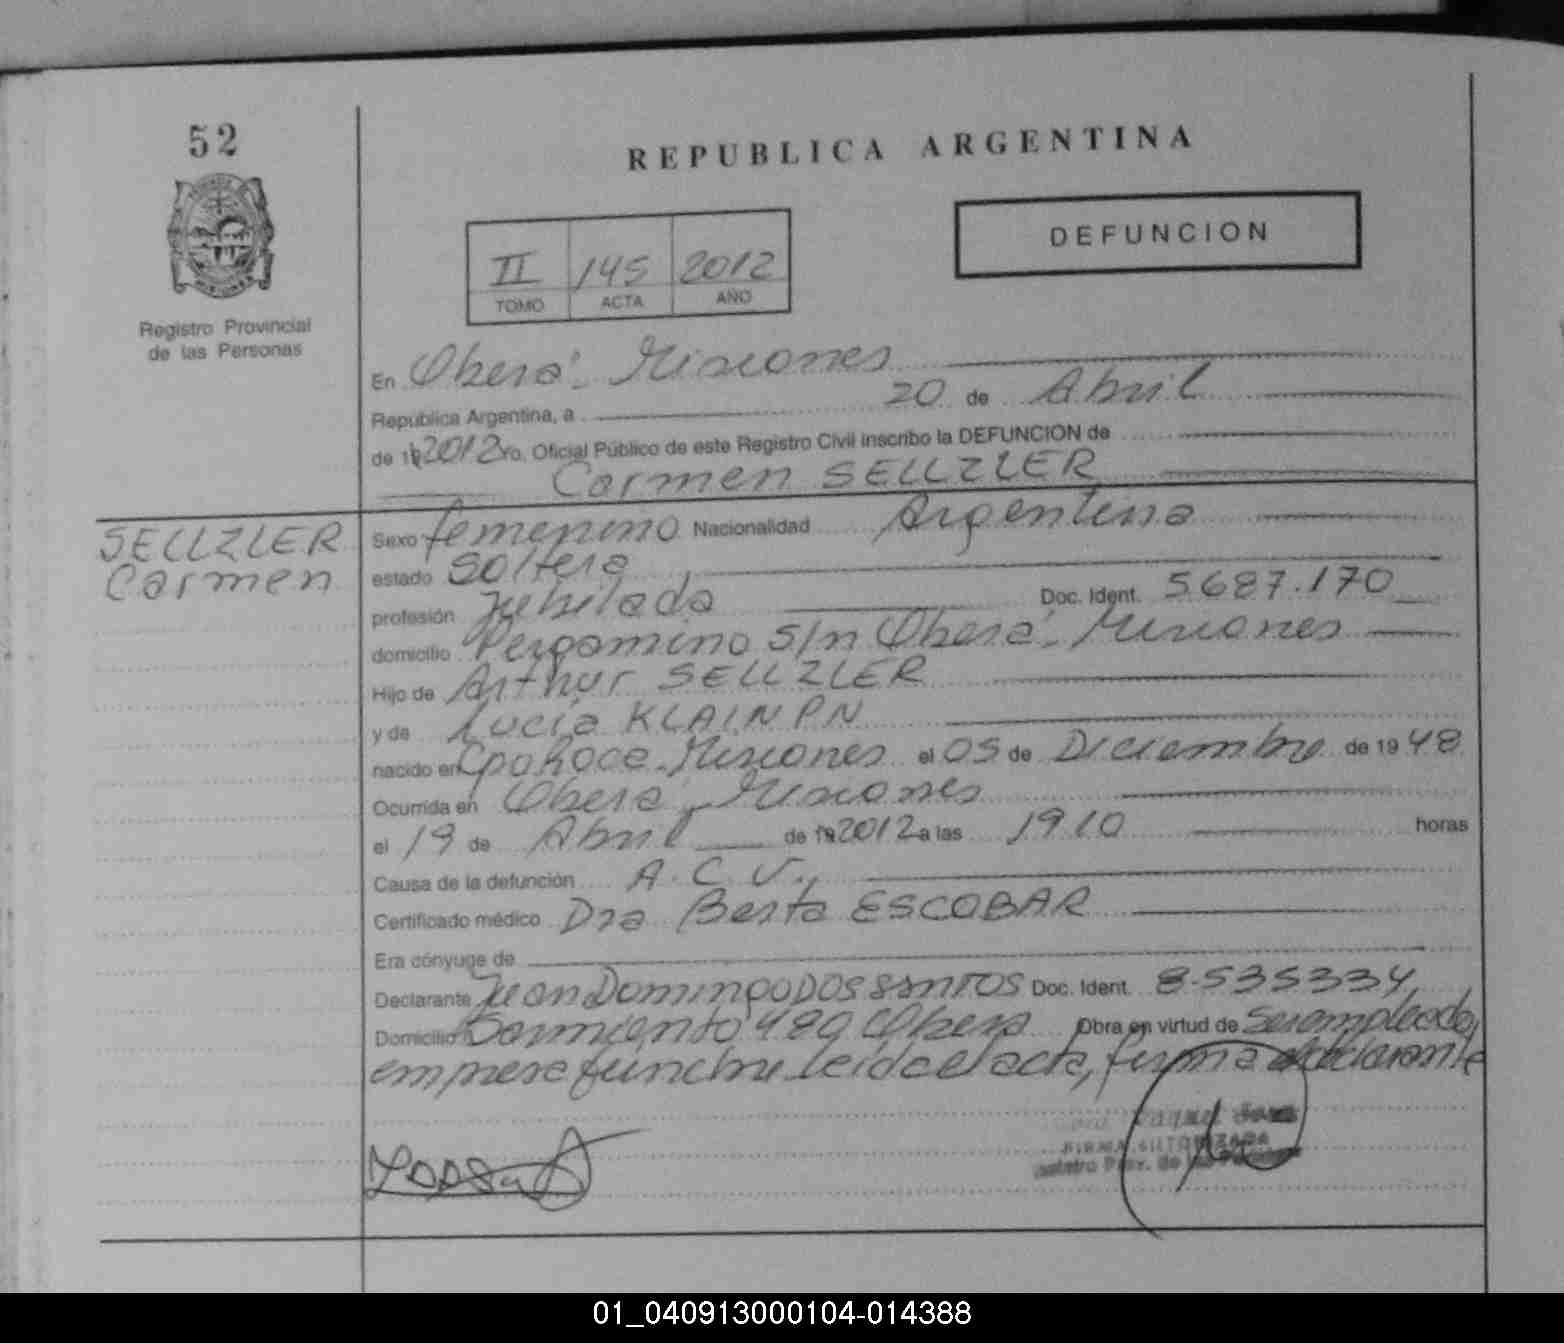 52
REPUBLICA ARGENTINA
DEFUNCION
II 145 2012
TOMO ACTA AÑO
Registro Provincial
de las Personas
En Oberá - Misiones
República Argentina, a 20 de Abril
de 19 2012 Yo, Oficial Público de este Registro Civil inscribo la DEFUNCION de
Carmen SELLZLER
SELLZLER
Carmen
Sexo femenino Nacionalidad Argentina
estado soltera
profesión Jubilada Doc. Ident. 5.687.170
domicilio Pergamino S/n Oberá - Misiones
Hijo de Arthur SELLZLER
y de Lucia KLAINPN
nacido en Misiones el 05 de Diciembre de 1948
Ocurrida en Oberá - Misiones
el 19 de Abril de 19 2012 a las 1910 horas
Causa de la defunción A.C.V.
Certificado médico Dra Berta ESCOBAR
Era cónyuge de
Declarante Juan Domingo DOS SANTOS Doc. Ident. 8.535334
Domicilio Sarmiento 489 Obera Obra en virtud de Ser empleado
empresa fúnebre leída el acta, firma el declarante
FIRMA AUTORIZADA
01_040913000104-014388